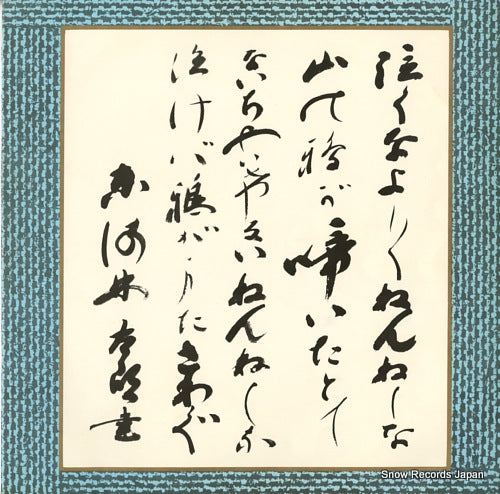 泣くなよし〱ねんねしな
山の鴉が啼いたとて
ないちやいけないねんねしな
泣けば鴉がまたさわぐ
東海林太郎書
Snow Records Japan